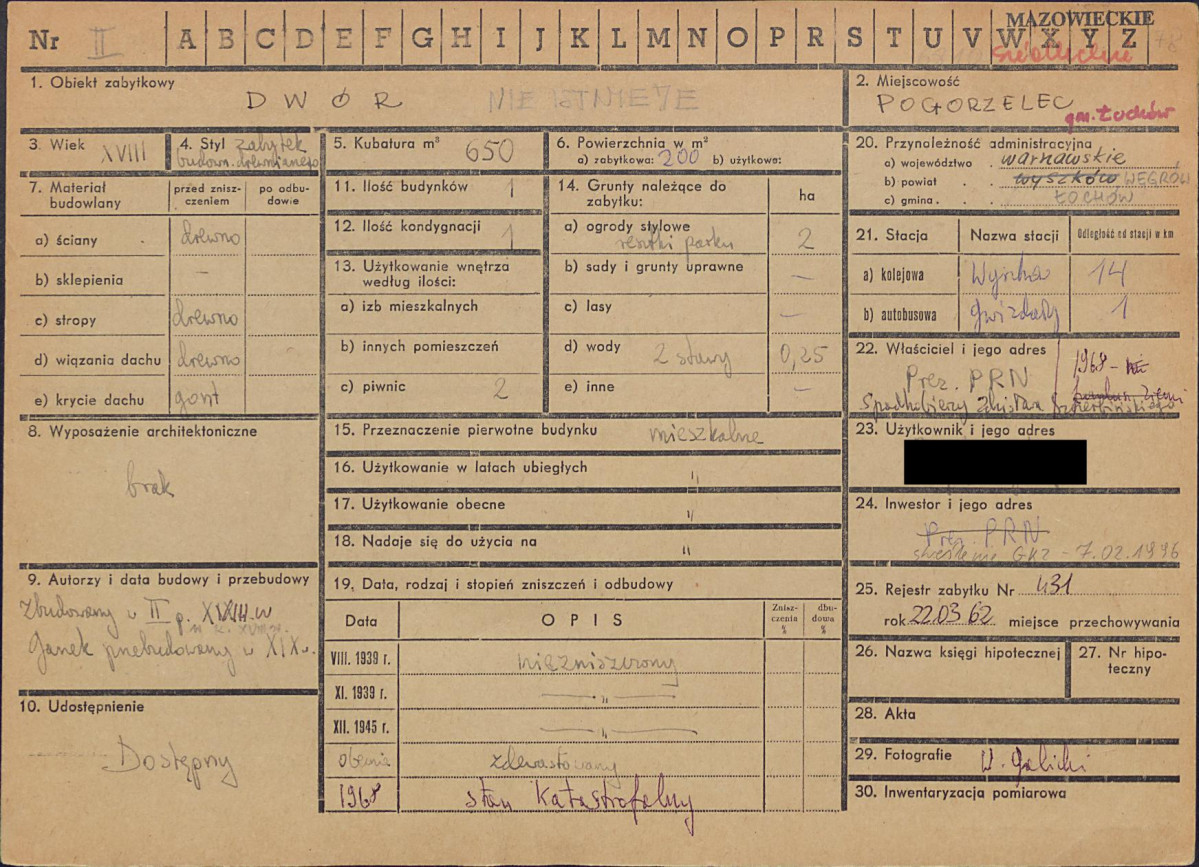 MAZOWIECKIE
Nr II A B C D E F G H I J K L M N O P R S T U V W X Y Z
Siedleckie
1. Obiekt zabytkowy
DWÓR NIE ISTNIEJE
2. Miejscowość
POGORZELEC
gm. Łochów
3. Wiek XVIII
4. Styl zabytek
budown. drewnianego
5. Kubatura m³ 650
6. Powierzchnia w m²
a) zabytkowa: 200 b) użytkowa:
7. Materiał budowlany
przed zniszczeniem
po odbudowie
a) ściany drewno
b) sklepienia –
c) stropy drewno
d) wiązania dachu drewno
e) krycie dachu gont
8. Wyposażenie architektoniczne
brak
9. Autorzy i data budowy i przebudowy
Zbudowany w II p. XVIII w
Ganek przebudowany w XIX w.
10. Udostępnienie
Dostępny
11. Ilość budynków 1
12. Ilość kondygnacji 1
13. Użytkowanie wnętrza
według ilości:
a) izb mieszkalnych
b) innych pomieszczeń
c) piwnic 2
14. Grunty należące do
zabytku: ha
a) ogrody stylowe
resztki parku 2
b) sady i grunty uprawne –
c) lasy –
d) wody 2 stawy 0,25
e) inne –
15. Przeznaczenie pierwotne budynku mieszkalne
16. Użytkowanie w latach ubiegłych "
17. Użytkowanie obecne "
18. Nadaje się do użycia na "
19. Data, rodzaj i stopień zniszczeń i odbudowy
Data OPIS Zniszczenia % dbudowa %
VIII. 1939 r. niezniszczony
XI. 1939 r. — " —
XII. 1945 r. — " —
obecnie zdewastowany
1968 stan katastrofalny
20. Przynależność administracyjna
a) województwo warszawskie
b) powiat wyszków WĘGRÓW
c) gmina ŁOCHÓW
21. Stacja Nazwa stacji Odległość od stacji w km
a) kolejowa Wyszków 14
b) autobusowa Gwizdały 1
22. Właściciel i jego adres
Prez. PRN
1968 -
Spadkobiercy Zdzisława
23. Użytkownik i jego adres
24. Inwestor i jego adres
Prez. PRN
skreślenie GKZ - 7.02.1996
25. Rejestr zabytku Nr 431
rok 22.03 62 miejsce przechowywania
26. Nazwa księgi hipotecznej
27. Nr hipoteczny
28. Akta
29. Fotografie W. Galicki
30. Inwentaryzacja pomiarowa